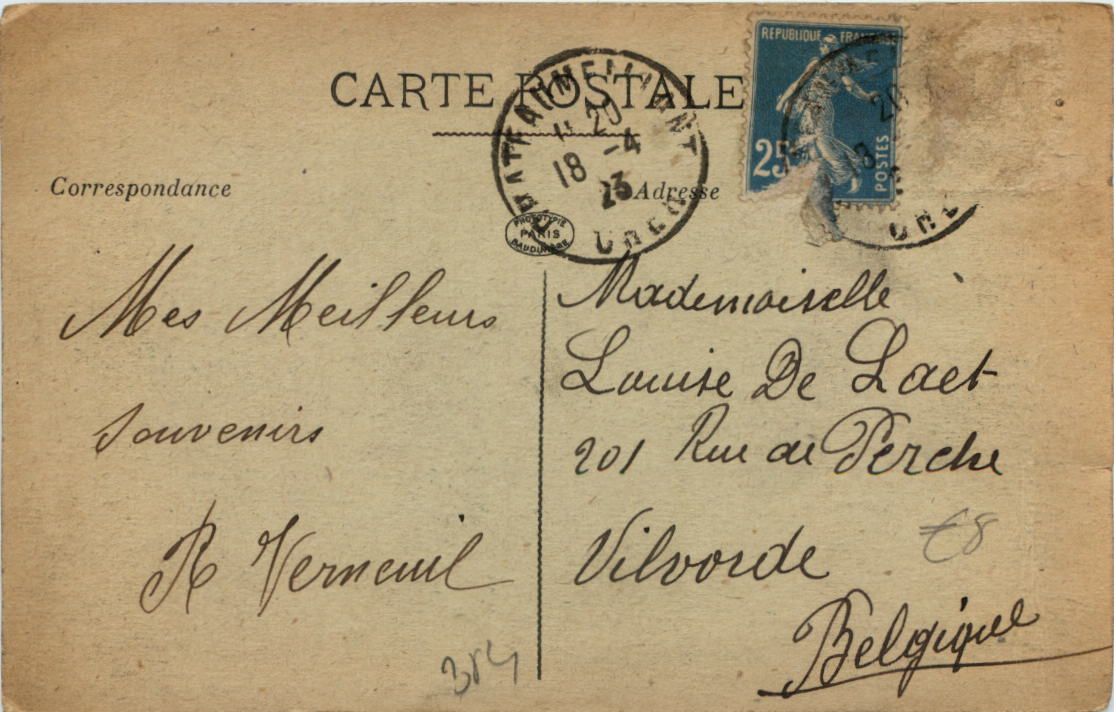 CARTE POSTALE
Correspondance
Adresse
RÉPUBLIQUE FRANÇAISE
25
POSTES
20
18 -4
23
PHOTOTYPIE
PARIS
BAUDINIÈRE
Mes Meilleurs
souvenirs
R Verneuil
Mademoiselle
Louise De Laet
201 Rue de Perche
Vilvorde
Belgique
€8